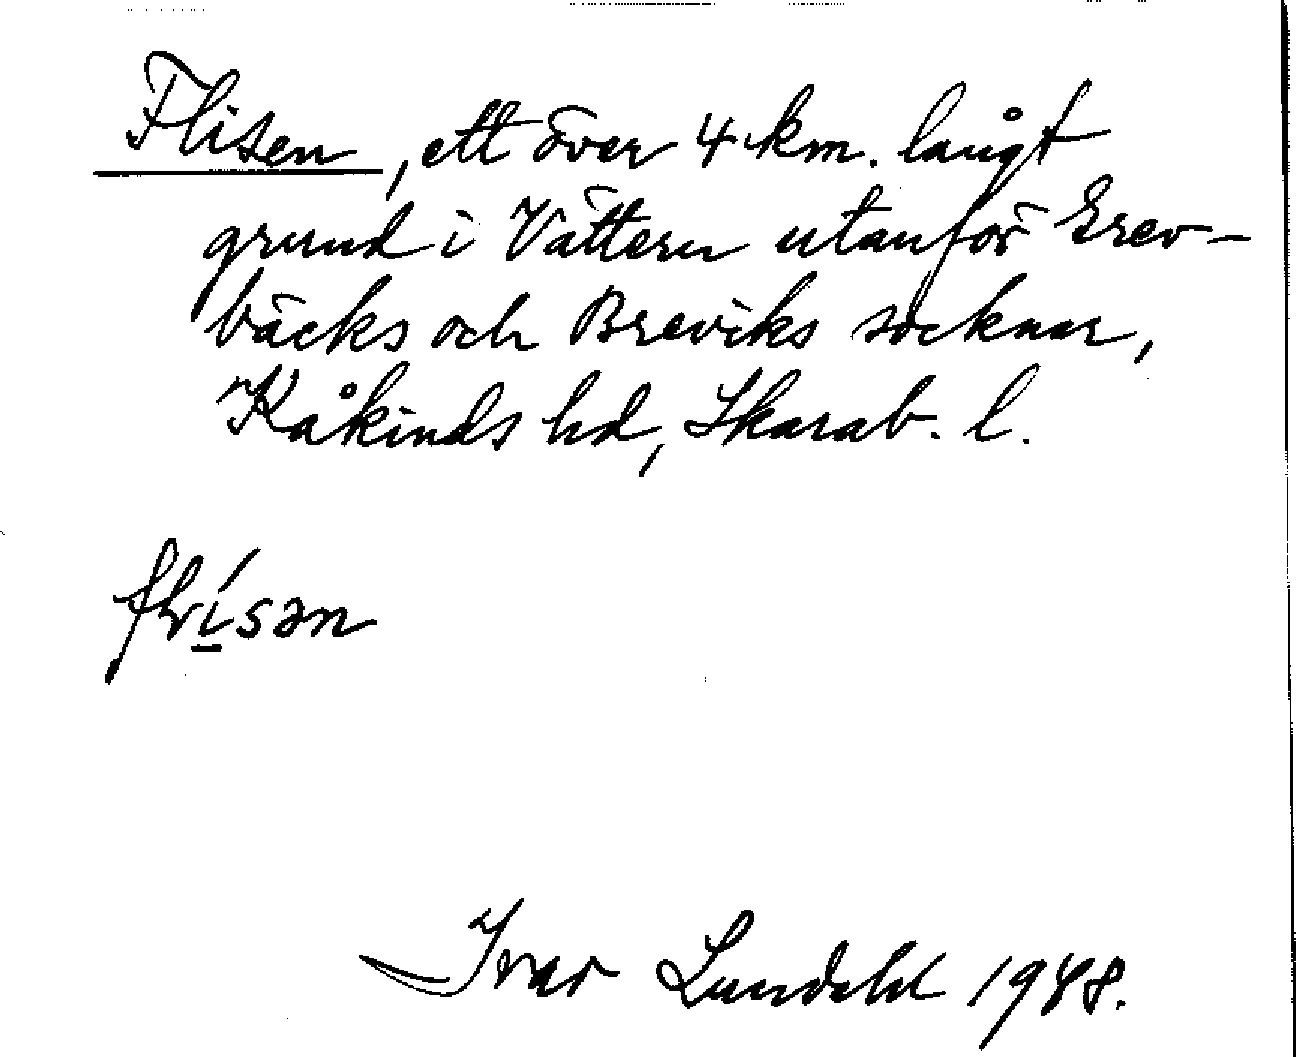 Flisen, ett över 4 km. långt
grund i Vättern utanför Grev-
bäcks och Breviks socknar,
Kåkinds hd, Skarab. l.
Ivar Lundahl 1948.